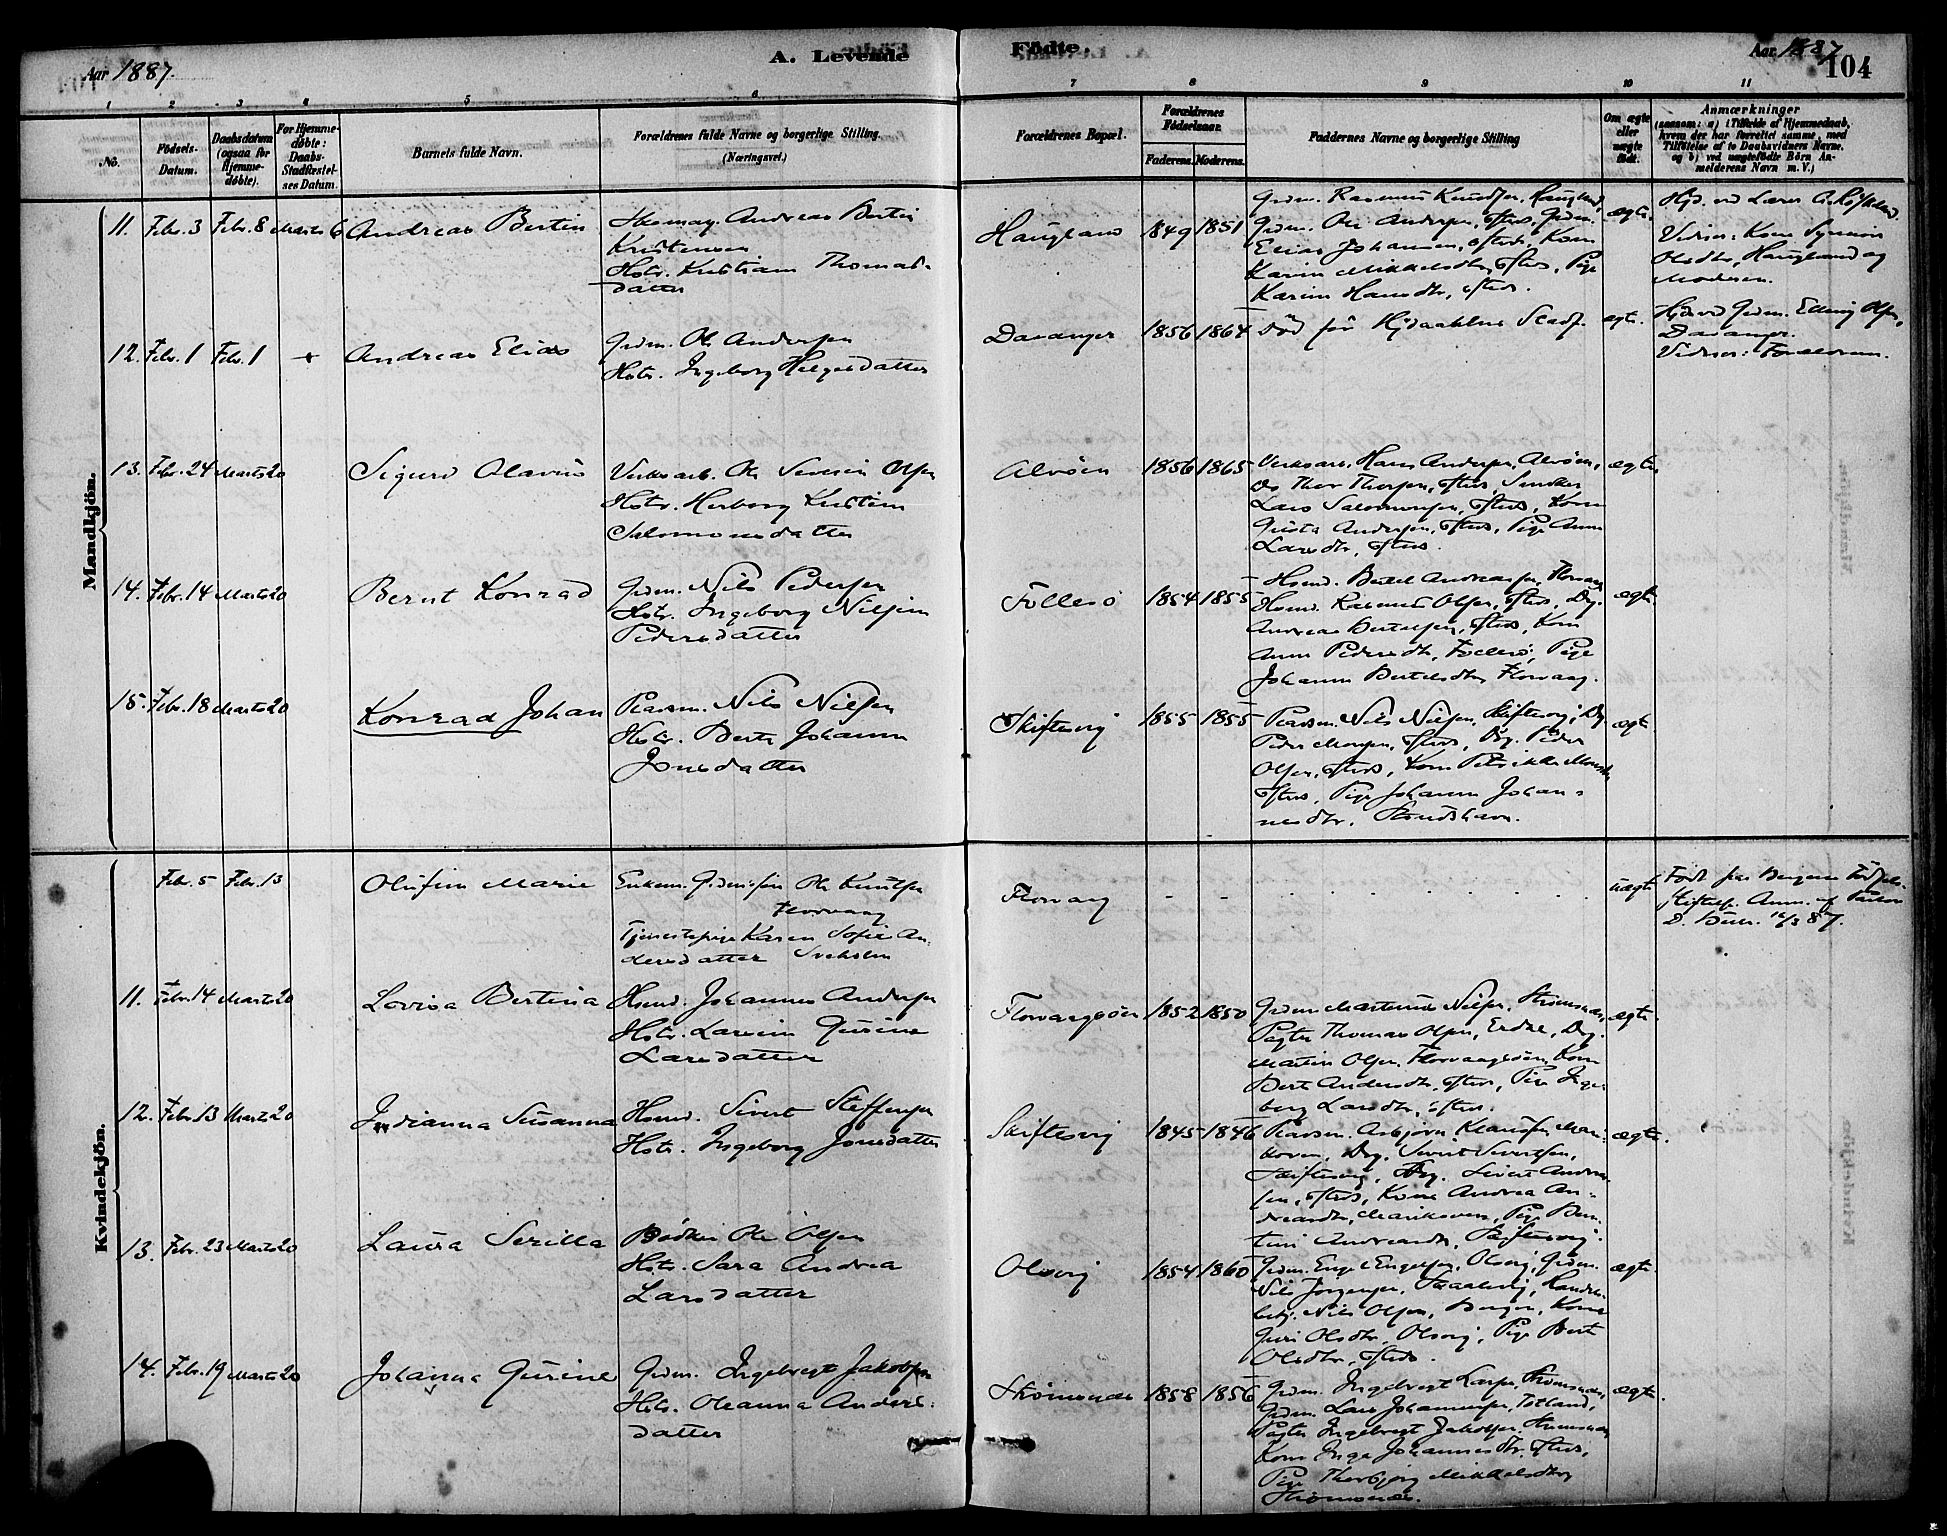 Aar 1887.
A. Levende
Födte.
Aar 1887
104
1 2 3 4 5 6 7 8 9 10 11
No.
Födsels-Datum.
Daabsdatum (ogsaa for Hjemmedöbte).
For Hjemmedöbte: Daabs-Stadfæstelses Datum.
Barnets fulde Navn.
Forældrenes fulde Navne og borgerlige Stilling. (Næringsvei.)
Forældrenes Bopæl.
Forældrenes Födselsaar.
Faderens. Moderens.
Faddernes Navne og borgerlige Stilling
Om ægte eller uægte födt.
Anmærkninger
(saasom: a) i Tilfælde af Hjemmedaab,
hvem der har forrettet samme, med
Tilföielse af to Daabsvidners Navne,
og b) ved uægtefödte Börn An-
melderens Navn m. V.)
Mandkjön.
11. Febr. 3 Febr. 8 Marts 6 Andreas Bertin
Skomag. Andreas Bertin
Kristensen
Hstr. Kristiane Thomas-
datter
Haugland 1849 1851
Grdm. Rasmus Knudsen, Haugland,
Grdm. Ole Andersen, ofsteds, Grdm.
Elias Johannesen, ofsteds, Kone
Karin Mikkelsdtr, ofsteds, Pige
Karine Hansdtr, ofsteds.
ægte.
Hjd. ved Lærer
Vidner: Kone Synneve
Olsdtr, Haugland og
Moderen.
12. Febr. 1 Febr. 1 + Andreas Elias
Grdm. Ole Andersen
Hstr. Ingeborg Helgesdatter
Davanger 1856 1864 Død før Hjdaabens Stadf. ægte.
Hjd. ved Grdm. Elling Olsen,
Davanger.
Vidner: Forældrene.
13. Febr. 24 Marts 20 Sigurd Olavus
Verksarb. Ole Severin Olsen
Hstr. Herborg Kristine
Salomonsdatter
Alvøen 1856 1865
Verksarb. Hans Andersen, Alvøen,
Do Thor Thorsen, ofsteds, Snedker
Lars Salomonsen, ofsteds, Kone
Gusta Andersen, ofsteds, Pige Anna
Larsdtr, ofsteds.
ægte
14. Febr. 14 Marts 20 Bernt Konrad
Grdm. Nils Pedersen
Hstr. Ingeborg Nilsine
Pedersdatter
Follesø 1854 1855
Husmd. Bertel Andreassen, Florvaag
Husmd. Rasmus Olsen, ofsteds, Ug.
Andreas Bertelsen, ofsteds, Kone
Anna Pedersdtr, Follesø, Pige
Johanna Bertelsdtr, Florvaag.
ægte.
15. Febr. 18 Marts 20 Konrad Johan
Pladsm. Nils Nilsen
Hstr. Berte Johanna
Jonsdatter
Skiftesvig 1855 1855
Pladsm. Nils Nilsen, Skiftesvig, Ug.
Peder Monsen, ofsteds, Ug. Peder
Olsen, ofsteds, Kone Petrikke Monsdtr
ofsteds, Pige Johanna Johan-
nesdtr, Strudshavn.
ægte.
Kvindekjön.
Febr. 5 Febr. 13 Olufine Marie
Enkem. Grdmssøn Ole Knutsen
Florvaag
Tjenestepige Karen Sofie An-
dersdatter
Florvaag - - uægte
Født paa Bergens Fødsels-
stiftelse. Anm. af Pastor
16/3 87.
11. Febr. 14 Marts 20 Lovisa Bertina
Husmd. Johannes Andersen
Hstr. Larsine Gurine
Larsdatter
Florvaagøen 1852 1850
Grdm Martinus Nilsen, Strømsnæs,
Pagter Thomas Olsen, Erdal, Ug.
Martin Olsen, Florvaagøen, Kone
Berte Andersdtr, ofsteds, Pige Inge-
borg Larsdtr, ofsteds.
ægte.
12. Febr. 13 Marts 20 Indianna Susanna
Husmd. Sivert Steffensen
Hstr. Ingeborg Jonsdatter
Skiftesvig 1845 1846
Pladsm. Asbjørn Klausen, Mari-
koven, Ug. Sivert Sivertsen,
Skiftesvig, Ug. Sivert Andrea-
sen, ofsteds, Kone Andrea An-
dreasdtr, Marikoven, Pige Ber-
tine Andreasdtr, Skiftesvig.
ægte.
13. Febr. 23 Marts 20 Laura Serilla
Bødker Ole Olsen
Hstr. Sara Andrea
Larsdatter
Olsvig 1854 1860
Grdm. Engel Engelsen, Olsvig, Grdm.
Nils Jørgensen, Skaalevig, Handels-
betj. Nils Olsen, Bergen, Kone
Guri Olsdtr, Olsvig, Pige Berte
Olsdtr, ofsteds.
ægte.
14. Febr. 19 Marts 20 Johanna Gurine
Grdm. Ingebregt Jakobsen
Hstr. Oleanna Anders-
datter
Strømsnæs 1858 1856
Grdm. Ingebregt Larsen, Strømsnæs,
Grdm. Lars Johannesen, Totland,
Pagter Ingebregt Jakobsen, Strømsnæs
Kone Inga Johannesdtr, ofsteds,
Pige Thorbjørg Mikkelsdtr,
Strømsnæs.
ægte.